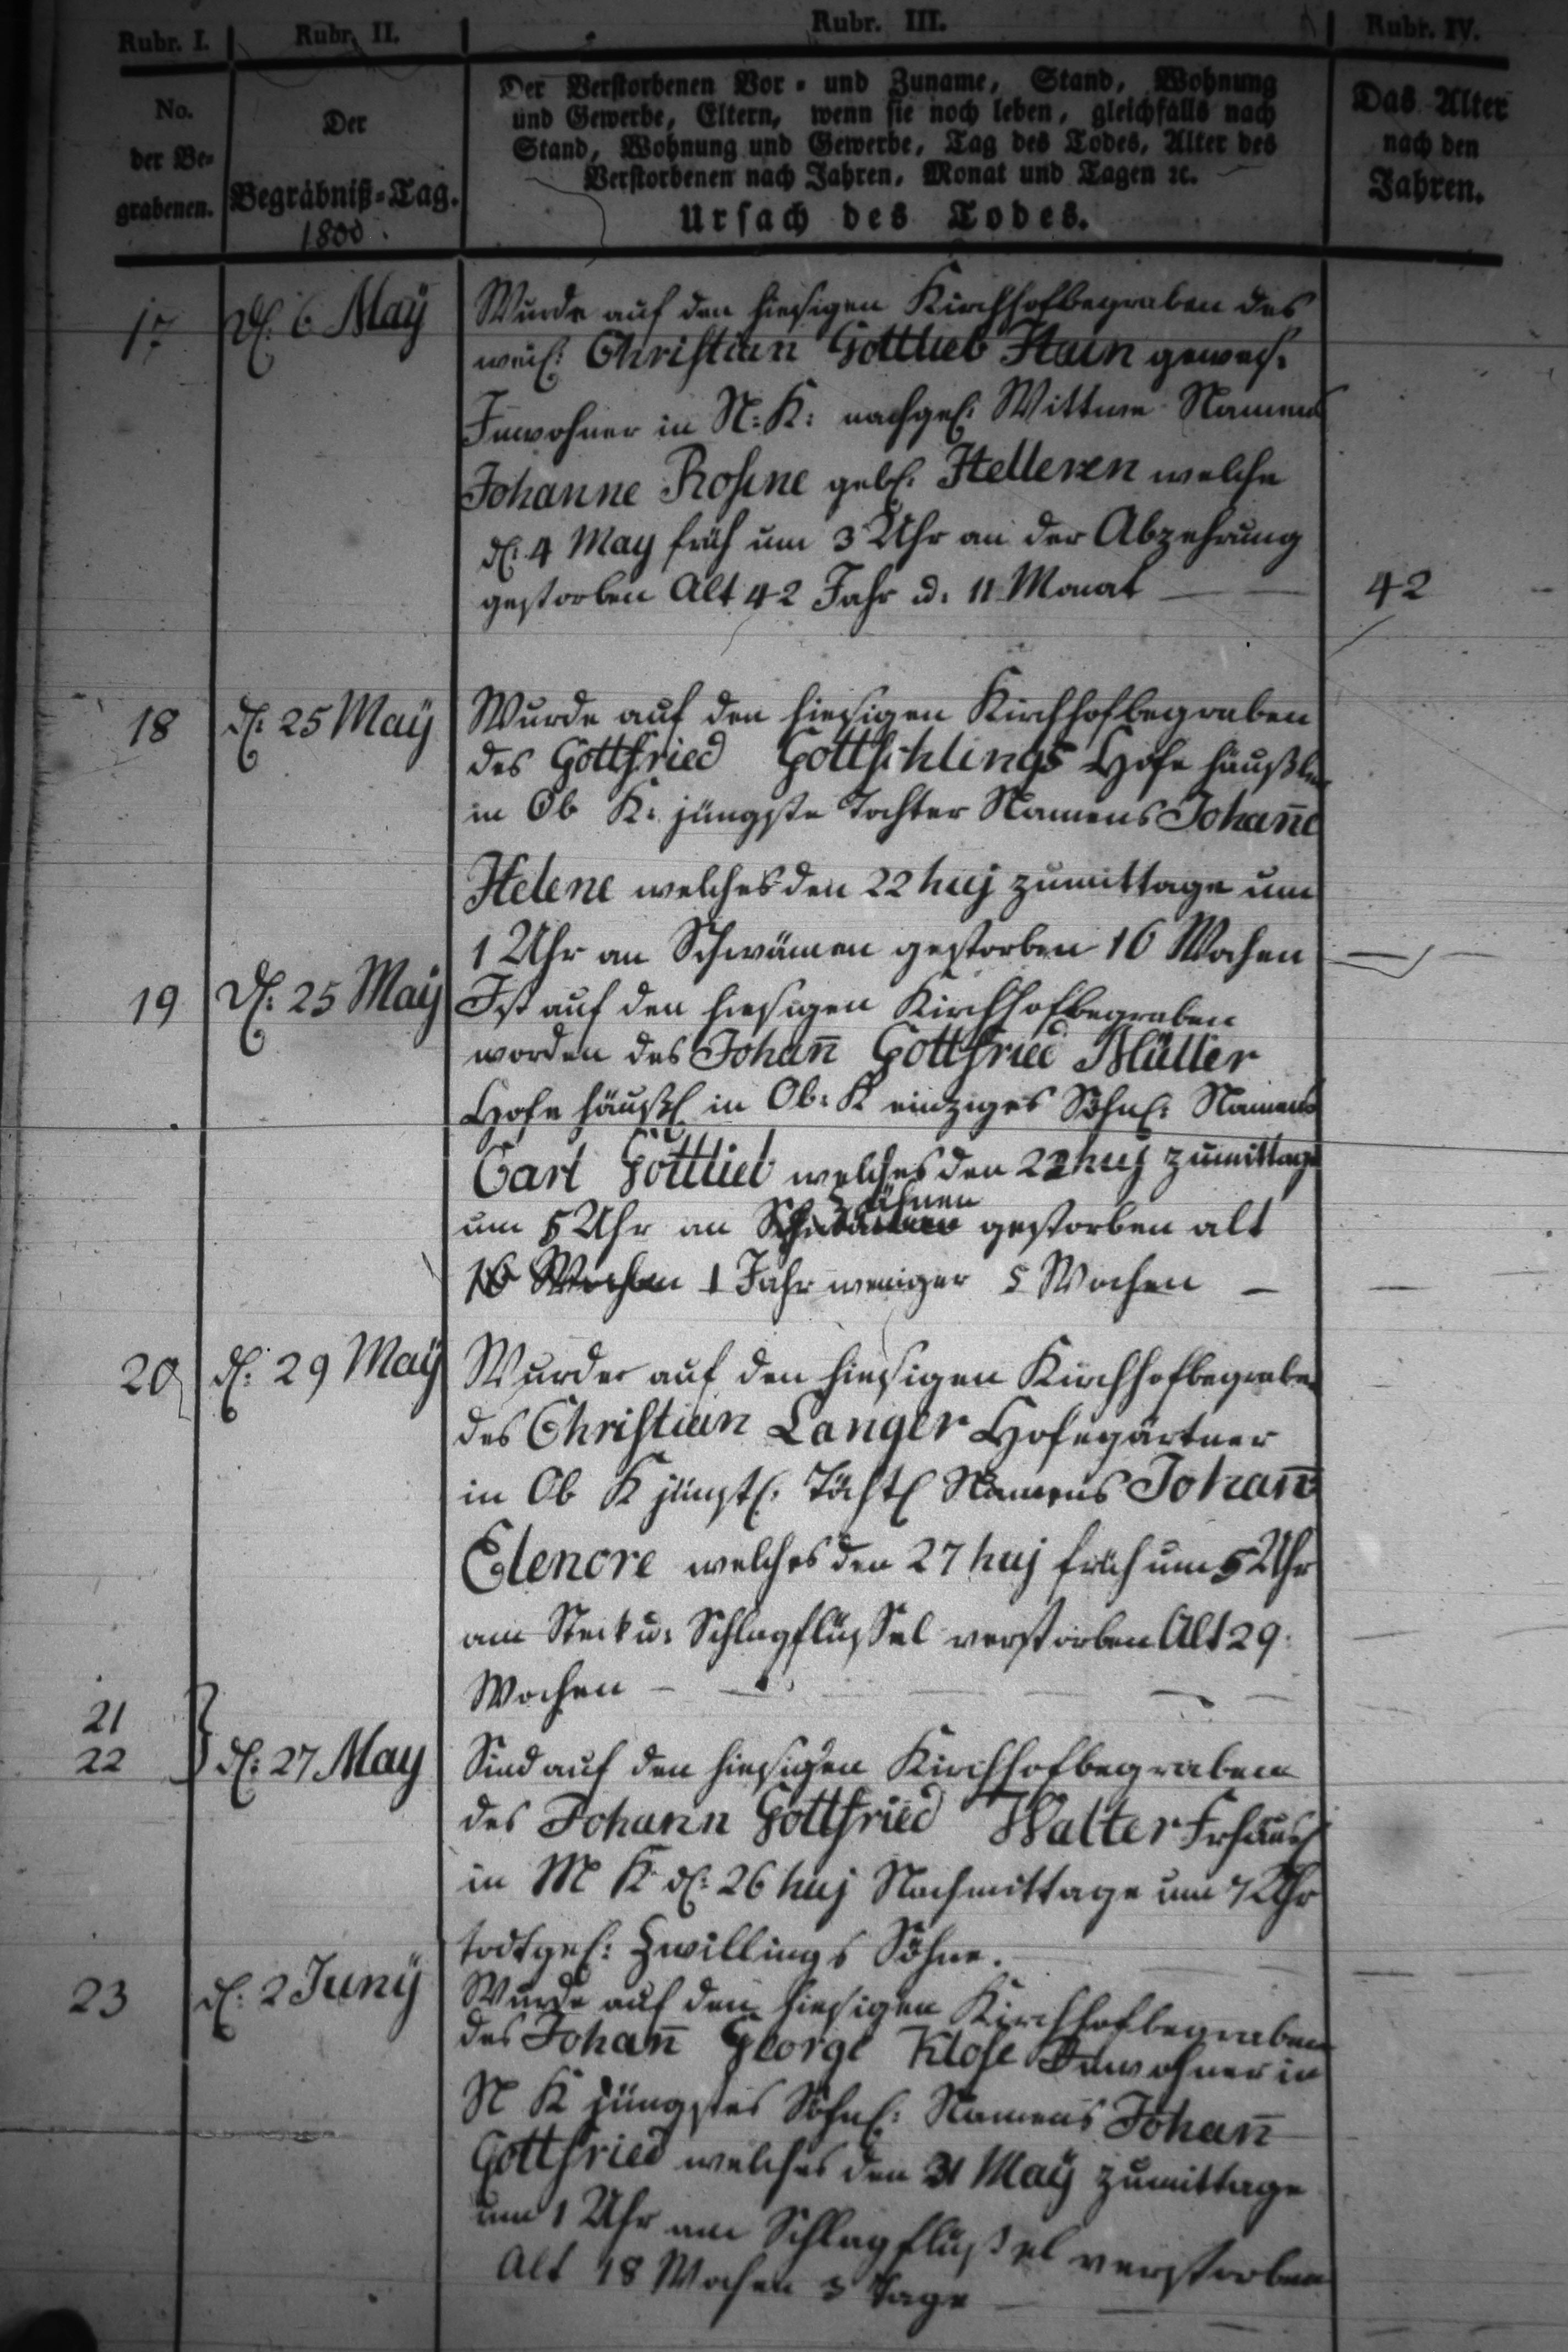 Rubr. I. Rubr. II. Rubr. III. Rubr. IV.
No.
der Be-
grabenen.
Der
Begräbniß-Tag.
1800.
Der Verstorbenen Vor- und Zuname, Stand, Wohnung
und Gewerbe, Eltern, wenn sie noch leben, gleichfalls nach
Stand, Wohnung und Gewerbe, Tag des Todes, Alter des
Verstorbenen nach Jahren, Monat und Tagen ꝛc.
Ursach des Todes.
Das Alter
nach den
Jahren.
17 d: 6 Maÿ Wurde auf den hiesigen Kirchhof begraben des
weil: Christian Gottlieb Hain gewes:
Inwohner in N: K: nachgel: Wittwe Namens
Johanne Rosine geb: Helleren welche
d: 4 May früh um 3 Uhr an der Abzehrung
gestorben Alt 42 Jahr u: 11 Monat — — 42
18 d: 25 Maÿ Wurde auf den hiesigen Kirchhof begraben
des Gottfried Gottschlings Hofehäußler
in Ob K: jüngste Tochter Namens Johan̄e
Helene welches den 22 huj zumittage um
1 Uhr an Schwämen gestorben 16 Wochen —
19 d: 25 Maÿ Ist auf den hiesigen Kirchhof begraben
worden des Johan̄ Gottfried Müller
Hofehäußl in Ob: K einziges Söhnl: Namens
Carl Gottlieb welches den 22 huj zumittage
Zähnen
um 5 Uhr an gestorben alt
16 Wochen 1 Jahr weniger 5 Wochen —
20 d: 29 Maÿ Wurde auf den hiesigen Kirchhof begraben
des Christian Langer Hofegärtner
in Ob K jüngst: Töchtl Namens Johan̄
Elenore welches den 27 huj früh um 5 Uhr
am Steck u: Schlagflüssel verstorben Alt 29
Wochen —
21
22 } d: 27 May Sind auf den hiesigen Kirchhof begraben
des Johann Gottfried Walter Frhäusl
in M K d: 26 huj Nachmittage um 7 Uhr
todtgeb: Zwillings Söhne.
23 d: 2 Junÿ Wurde auf den hiesigen Kirchhof begraben
des Johan̄ George Klose Inwohner in
N K jüngstes Söhnl: Namens Johan̄
Gottfried welches den 31 Maÿ zumittage
um 1 Uhr am Schlagflüßel verstorben
Alt 18 Wochen 3 Tage —